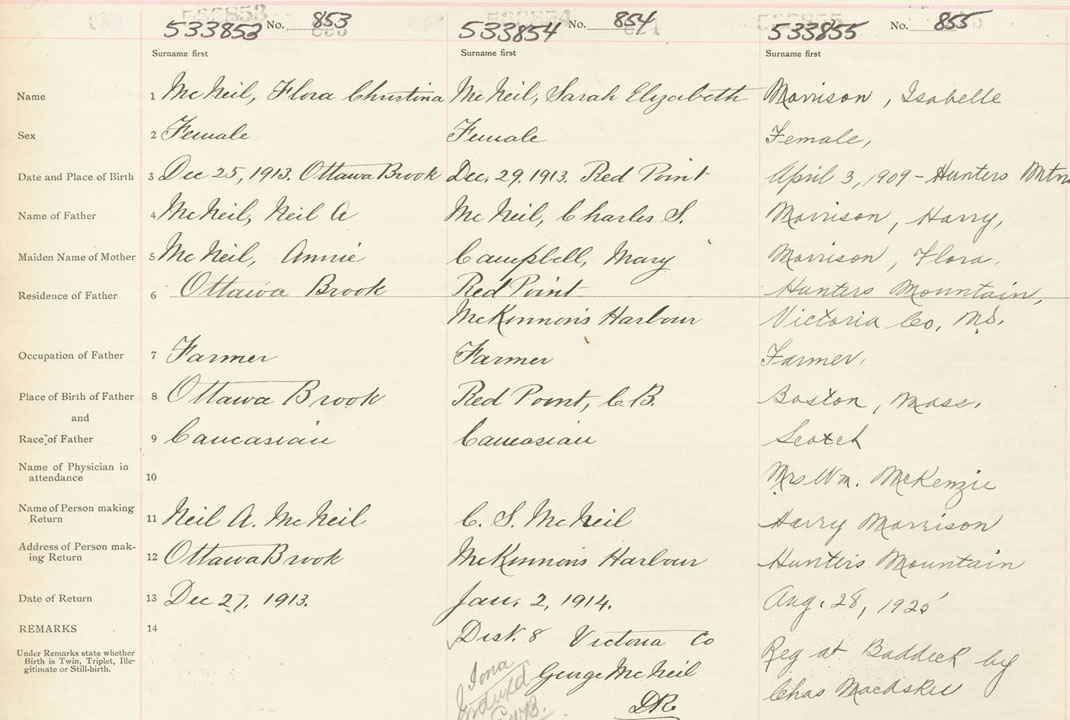 533853 No. 853 533854 No. 854 533855 No. 855
Surname first Surname first Surname first
Name 1 McNeil, Flora Christina McNeil, Sarah Elizabeth Morrison, Isabelle
Sex 2 Female Female Female,
Date and Place of Birth 3 Dec 25, 1913. Ottawa Brook Dec. 29. 1913. Red Point April 3, 1909 - Hunters Mtn
Name of Father 4 McNeil, Neil A McNeil, Charles S. Morrison, Harry,
Maiden Name of Mother 5 McNeil, Annie Campbell, Mary Morrison, Flora.
Residence of Father 6 Ottawa Brook Red Point Hunters Mountain,
McKinnon's Harbour Victoria Co, N.S.
Occupation of Father 7 Farmer Farmer Farmer.
Place of Birth of Father 8 Ottawa Brook Red Point, C.B. Boston, Mass.
and
Race of Father 9 Caucasian Caucasian Scotch
Name of Physician in
attendance 10 Mrs Wm. McKenzie
Name of Person making
Return 11 Neil A. McNeil C. S. McNeil Harry Morrison
Address of Person mak-
ing Return 12 Ottawa Brook McKinnon's Harbour Hunters Mountain
Date of Return 13 Dec 27, 1913. Jan. 2, 1914. Aug. 28, 1925
REMARKS 14 Dist. 8 Victoria Co Reg at Baddeck by
Under Remarks state whether
Birth is Twin, Triplet, Ille-
gitimate or Still-birth.
Iona George McNeil Chas MacAskill
Indexed DR